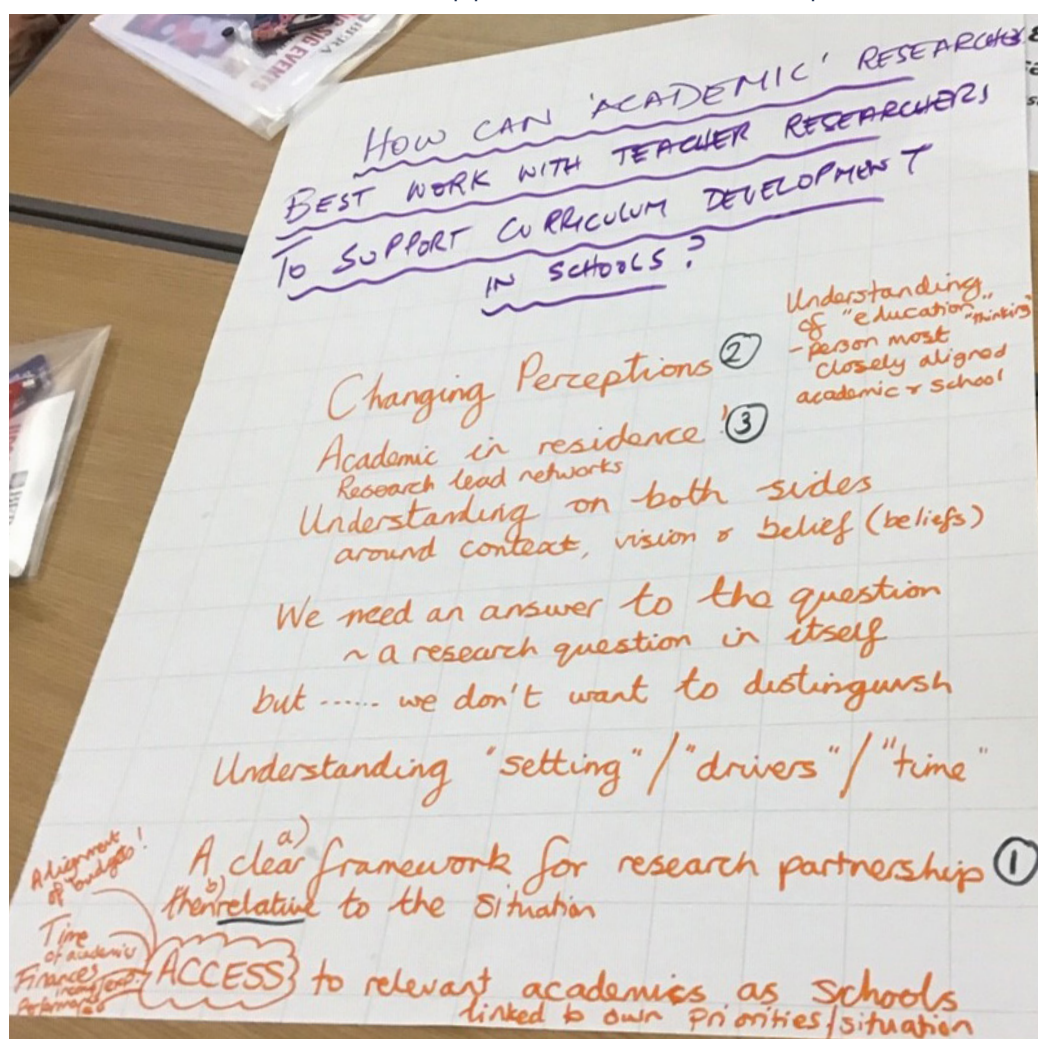 BERA
SIG EVENTS
HOW CAN 'ACADEMIC' RESEARCHERS
BEST WORK WITH TEACHER RESEARCHERS
TO SUPPORT CURRICULUM DEVELOPMENT
IN SCHOOLS?
Understanding
of "education"
"thinking"
- person most
closely aligned
academic & school
Changing Perceptions ②
Academic in residence! ③
Research lead networks
Understanding on both sides
around context, vision & belief (beliefs)
We need an answer to the question
~ a research question in itself
but ...... we don't want to distinguish
Understanding "setting" / "drivers" / "time"
a)
A clear framework for research partnership ①
b)
then relative to the situation
Alignment
of budgets!
Time
of academic
Finances
ACCESS to relevant academics as schools
linked to own priorities/situation